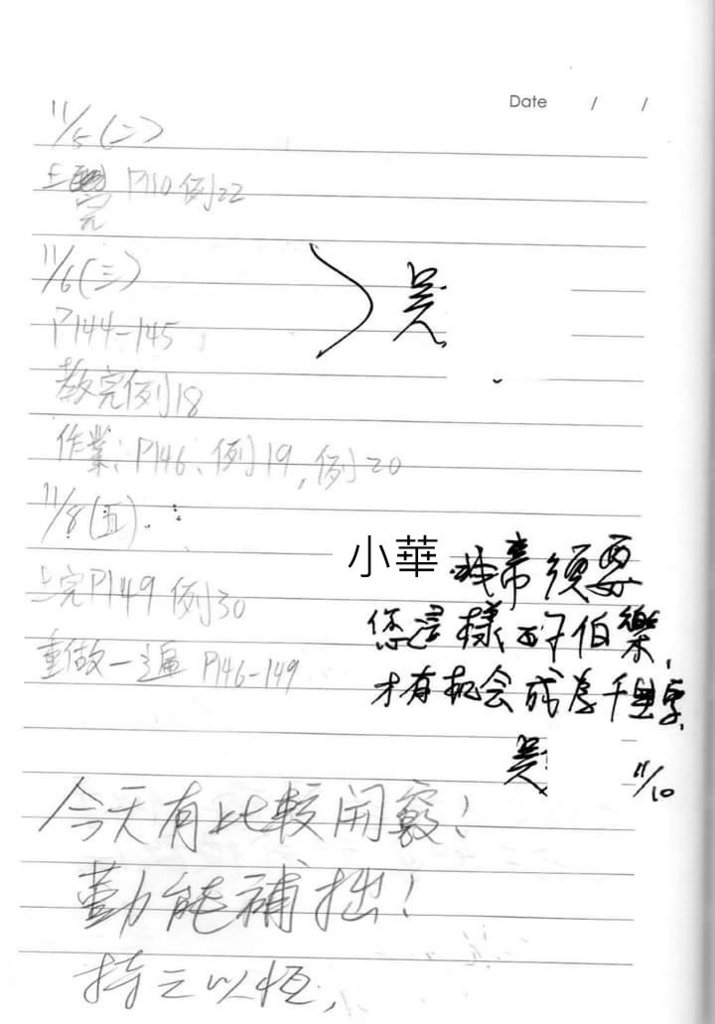 Date / /
11/5(二)
上完 P110 例22
11/6(三)
吳
P144-145
教完例18
作業: P146、例19, 例20
11/8(五)
小華 非常須要
上完P149 例30
您這樣的好伯樂,
重做一遍 P146-149
才有机会成為千里馬
吳 11/10
今天有比較開竅!
勤能補拙!
持之以恆,